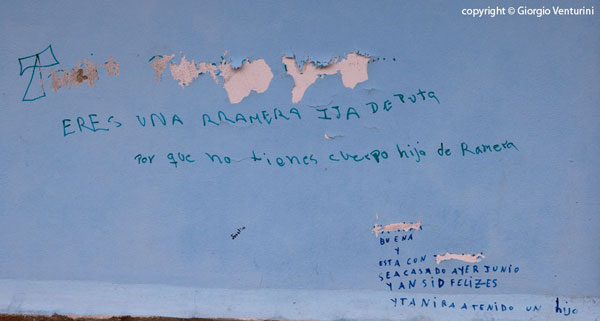 copyright © Giorgio Venturini
ERES UNA RRAMERA IJA DE PUTA
Por que no tienes cuerpo hija de Ramera
BUENA
Y
ESTA CON
SEACASADO AYER JUNIO
Y AN SID FELIZES
YTANIRA ATENIDO UN hijo